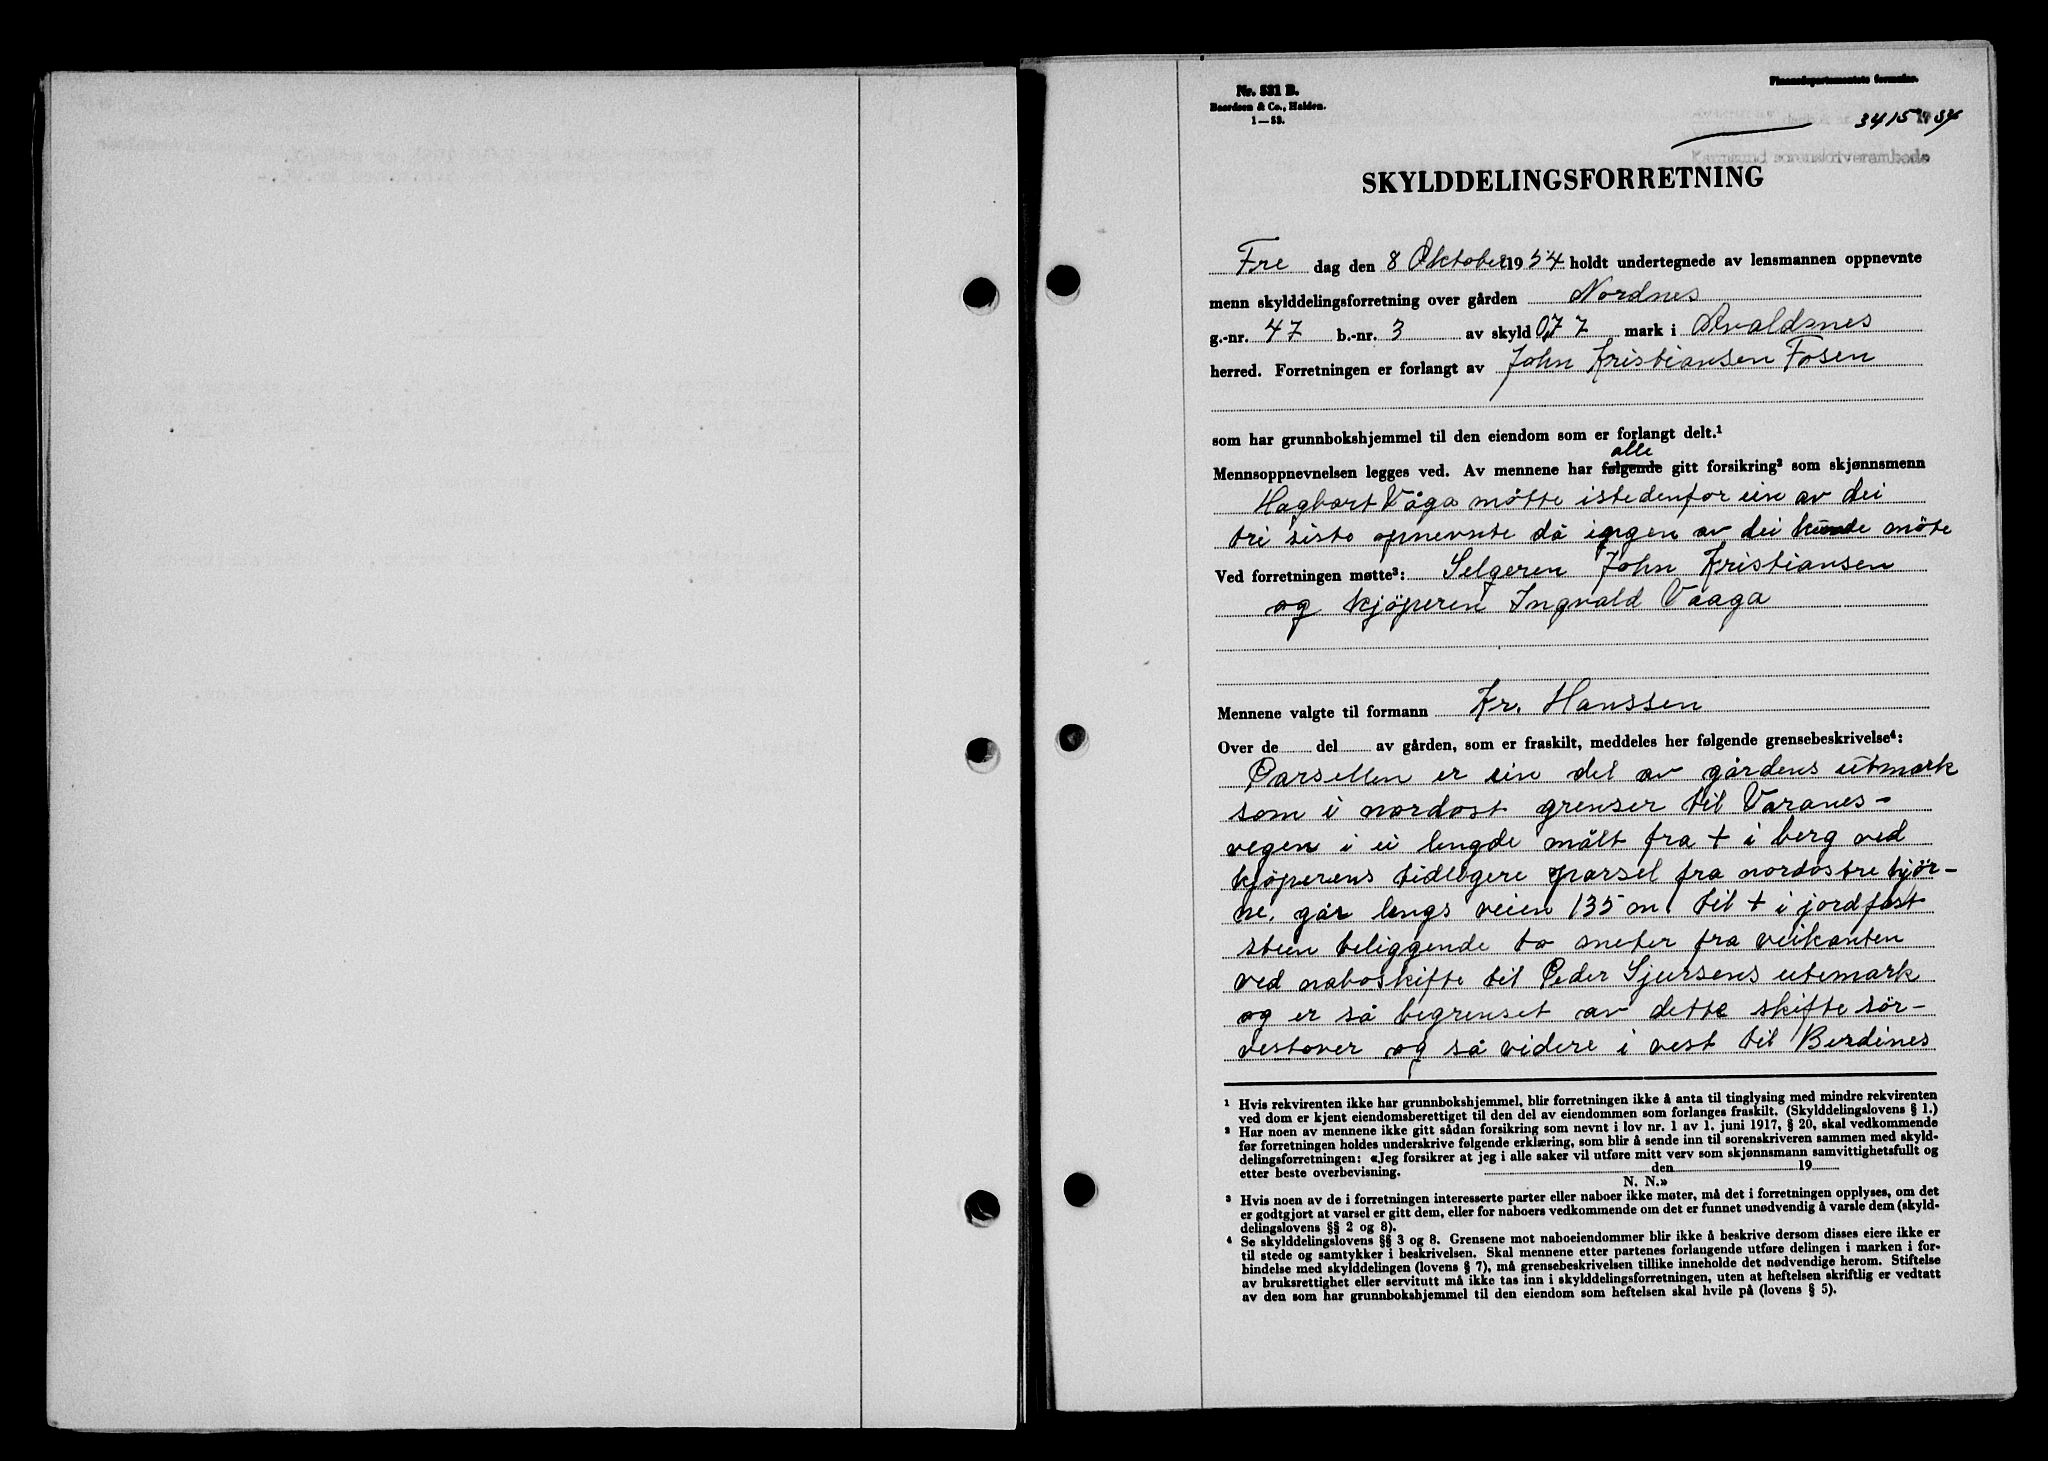 Nr. 531 B.
Baerdsen & Co., Halden.
1—53.
Finansdepartementets formular.
3415 54
Karmsund sorenskriverembede
SKYLDDELINGSFORRETNING
Fre dag den 8 Oktober 1954 holdt undertegnede av lensmannen oppnevnte
menn skylddelingsforretning over gården Nordnes
g.-nr. 47 b.-nr. 3 av skyld 0,77 mark i Avaldsnes
herred. Forretningen er forlangt av John Kristiansen Fosen
som har grunnbokshjemmel til den eiendom som er forlangt delt.¹
alle
Mennsoppnevnelsen legges ved. Av mennene har følgende gitt forsikring² som skjønnsmenn
Hagbart Våga møtte istedenfor ein av dei
tri siste opnevnte då ingen av dei kunde möte
Ved forretningen møtte³: Selgeren John Kristiansen
og kjöperen Ingvald Vaaga
Mennene valgte til formann Kr. Hanssen
Over de del av gården, som er fraskilt, meddeles her følgende grensebeskrivelse⁴:
Parsellen er ein del av gårdens utmark
som i nordost grenser til Varanes-
vegen i ei lengde målt fra + i berg ved
kjöperens tidligere parsel fra nordostre hjör-
ne, går lengs veien 135 m. til + i jordfast
steen beliggende to meter fra veikanten
ved naboskifte til Peder Sjursens utemark
og er så begrenset av dette skifte sör-
vestover og så videre i vest til Berdines
¹ Hvis rekvirenten ikke har grunnbokshjemmel, blir forretningen ikke å anta til tinglysing med mindre rekvirenten
ved dom er kjent eiendomsberettiget til den del av eiendommen som forlanges fraskilt. (Skylddelingslovens § 1.)
² Har noen av mennene ikke gitt sådan forsikring som nevnt i lov nr. 1 av 1. juni 1917, § 20, skal vedkommende
før forretningen holdes underskrive følgende erklæring, som blir å sende inn til sorenskriveren sammen med skyld-
delingsforretningen: «Jeg forsikrer at jeg i alle saker vil utføre mitt verv som skjønnsmann samvittighetsfullt og
etter beste overbevisning. den 19
N. N.»
³ Hvis noen av de i forretningen interesserte parter eller naboer ikke møter, må det i forretningen opplyses, om det
er godtgjort at varsel er gitt dem, eller for naboers vedkommende om det er funnet unødvendig å varsle dem (skyld-
delingslovens §§ 2 og 8).
⁴ Se skylddelingslovens §§ 3 og 8. Grensene mot naboeiendommer blir ikke å beskrive dersom disses eiere ikke er
til stede og samtykker i beskrivelsen. Skal mennene etter partenes forlangende utføre delingen i marken i for-
bindelse med skylddelingen (lovens § 7), må grensebeskrivelsen tillike inneholde det nødvendige herom. Stiftelse
av bruksrettighet eller servitutt må ikke tas inn i skylddelingsforretningen, uten at heftelsen skriftlig er vedtatt
av den som har grunnbokshjemmel til den eiendom som heftelsen skal hvile på (lovens § 5).